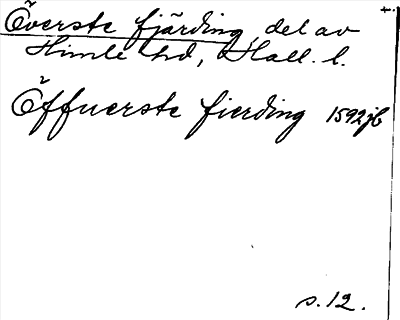 Överste fjärding, del av
Himle hd, Hall. l.
Öffuerste fierding 1592 jb
s. 12.